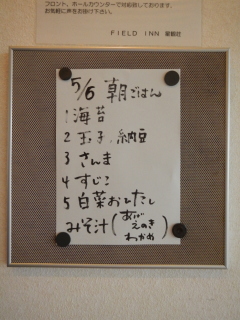 フロント、ホールカウンターで対応致しております。
お気軽に声をお掛け下さい。
FIELD INN 星館社
5/6 朝ごはん
1 海苔
2 玉子、納豆
3 さんま
4 すじこ
5 白菜おしたし
みそ汁(あげ
えのき
わかめ)